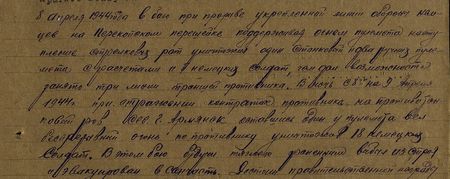 8 апреля 1944 года в бою при прорыве укрепленной линии обороны нем-
цев на Перекопском перешейке поддерживая огнем пулемета насту-
пление стрелковых рот уничтожил один станковый и два ручных пуле-
мета с расчетами и немецких солдат, чем дал возможность
занять три линии траншей противника. В ночь с 8 на 9 апреля
1944 г. при отражении контратак противника на противотан-
ковый ров оставшись один у пулемета вел
беспрерывный огонь по противнику уничтожил 18 немецких
солдат. В этом бою будучи тяжело раненным выбыл из строя
и эвакуирован в Достоин правительственной награды